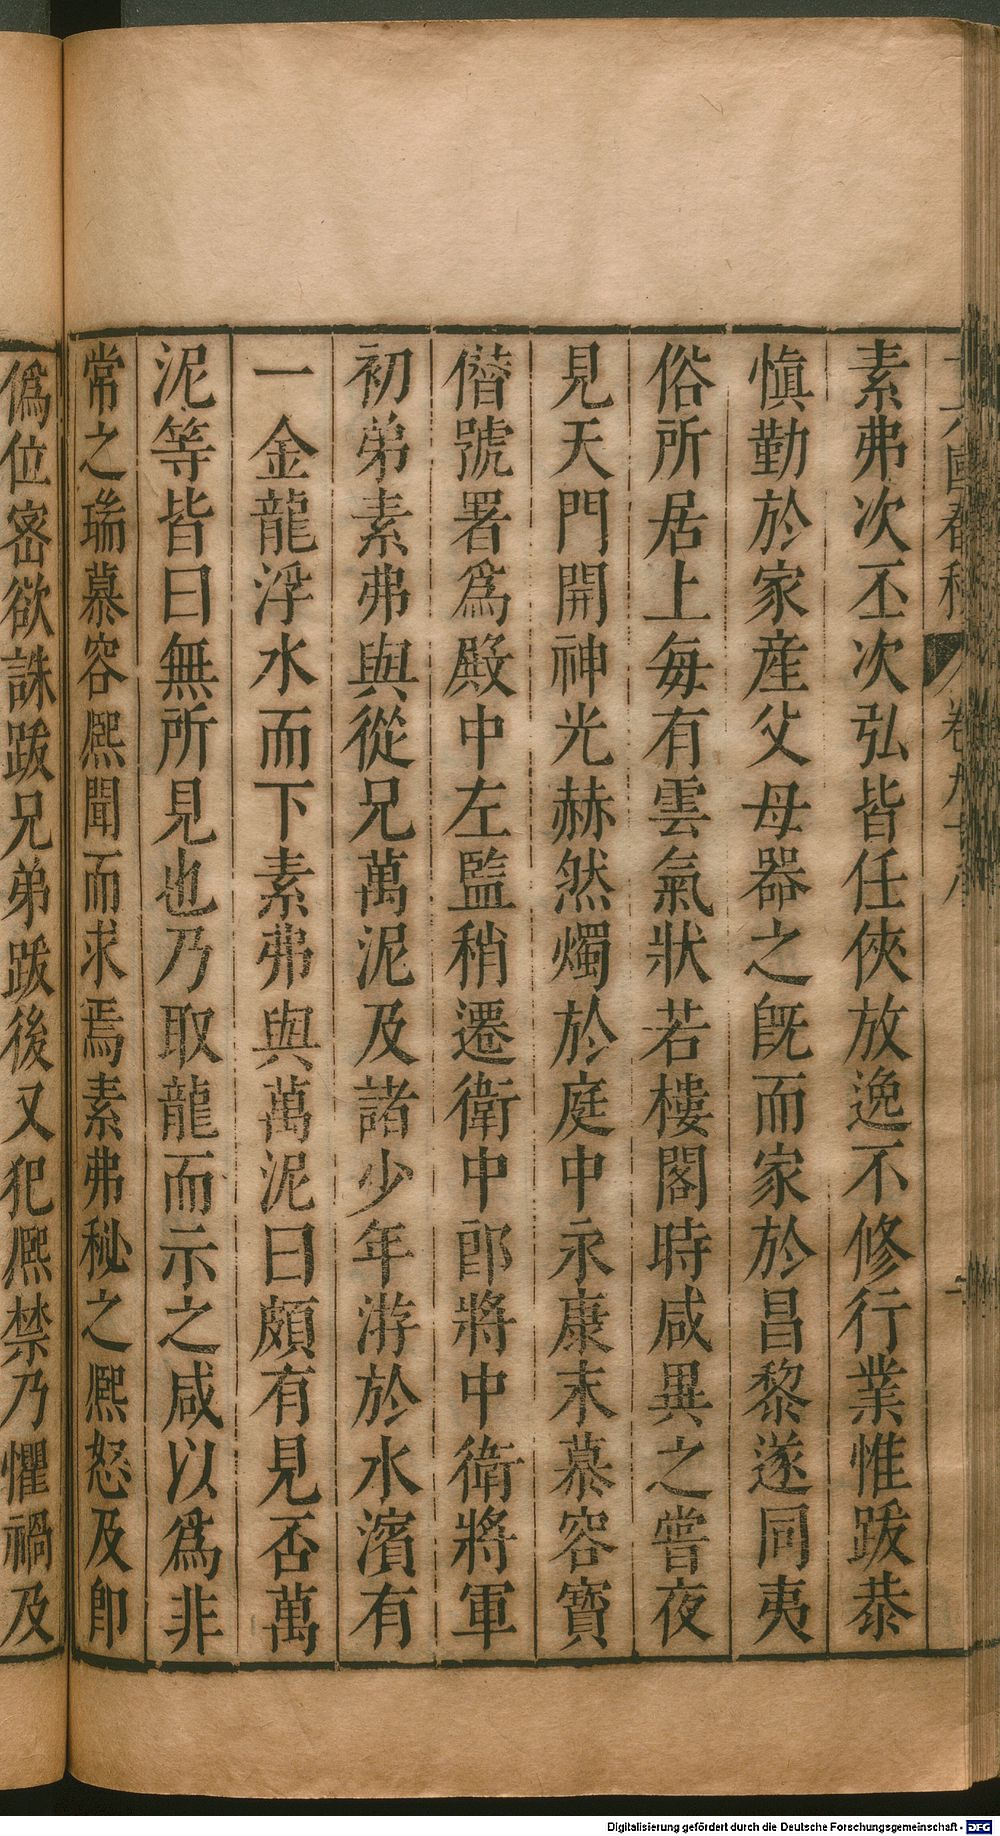 十六國春秋 卷九十八
素弗次丕次弘皆任俠放逸不修行業惟跋恭
慎勤於家産父母器之旣而家於昌黎遂同夷
俗所居上每有雲氣狀若樓閣時咸異之嘗夜
見天門開神光赫然燭於庭中永康末慕容寳
僣號署爲殿中左監稍遷衛中郎將中衛將軍
初弟素弗與從兄萬泥及諸少年游於水濱有
一金龍浮水而下素弗與萬泥曰頗有見否萬
泥等皆曰無所見也乃取龍而示之咸以爲非
常之瑞慕容熈聞而求焉素弗秘之熈怒及卽
僞位宻欲誅跋兄弟跋後又犯熈禁乃懼禍及
Digitalisierung gefördert durch die Deutsche Forschungsgemeinschaft - DFG